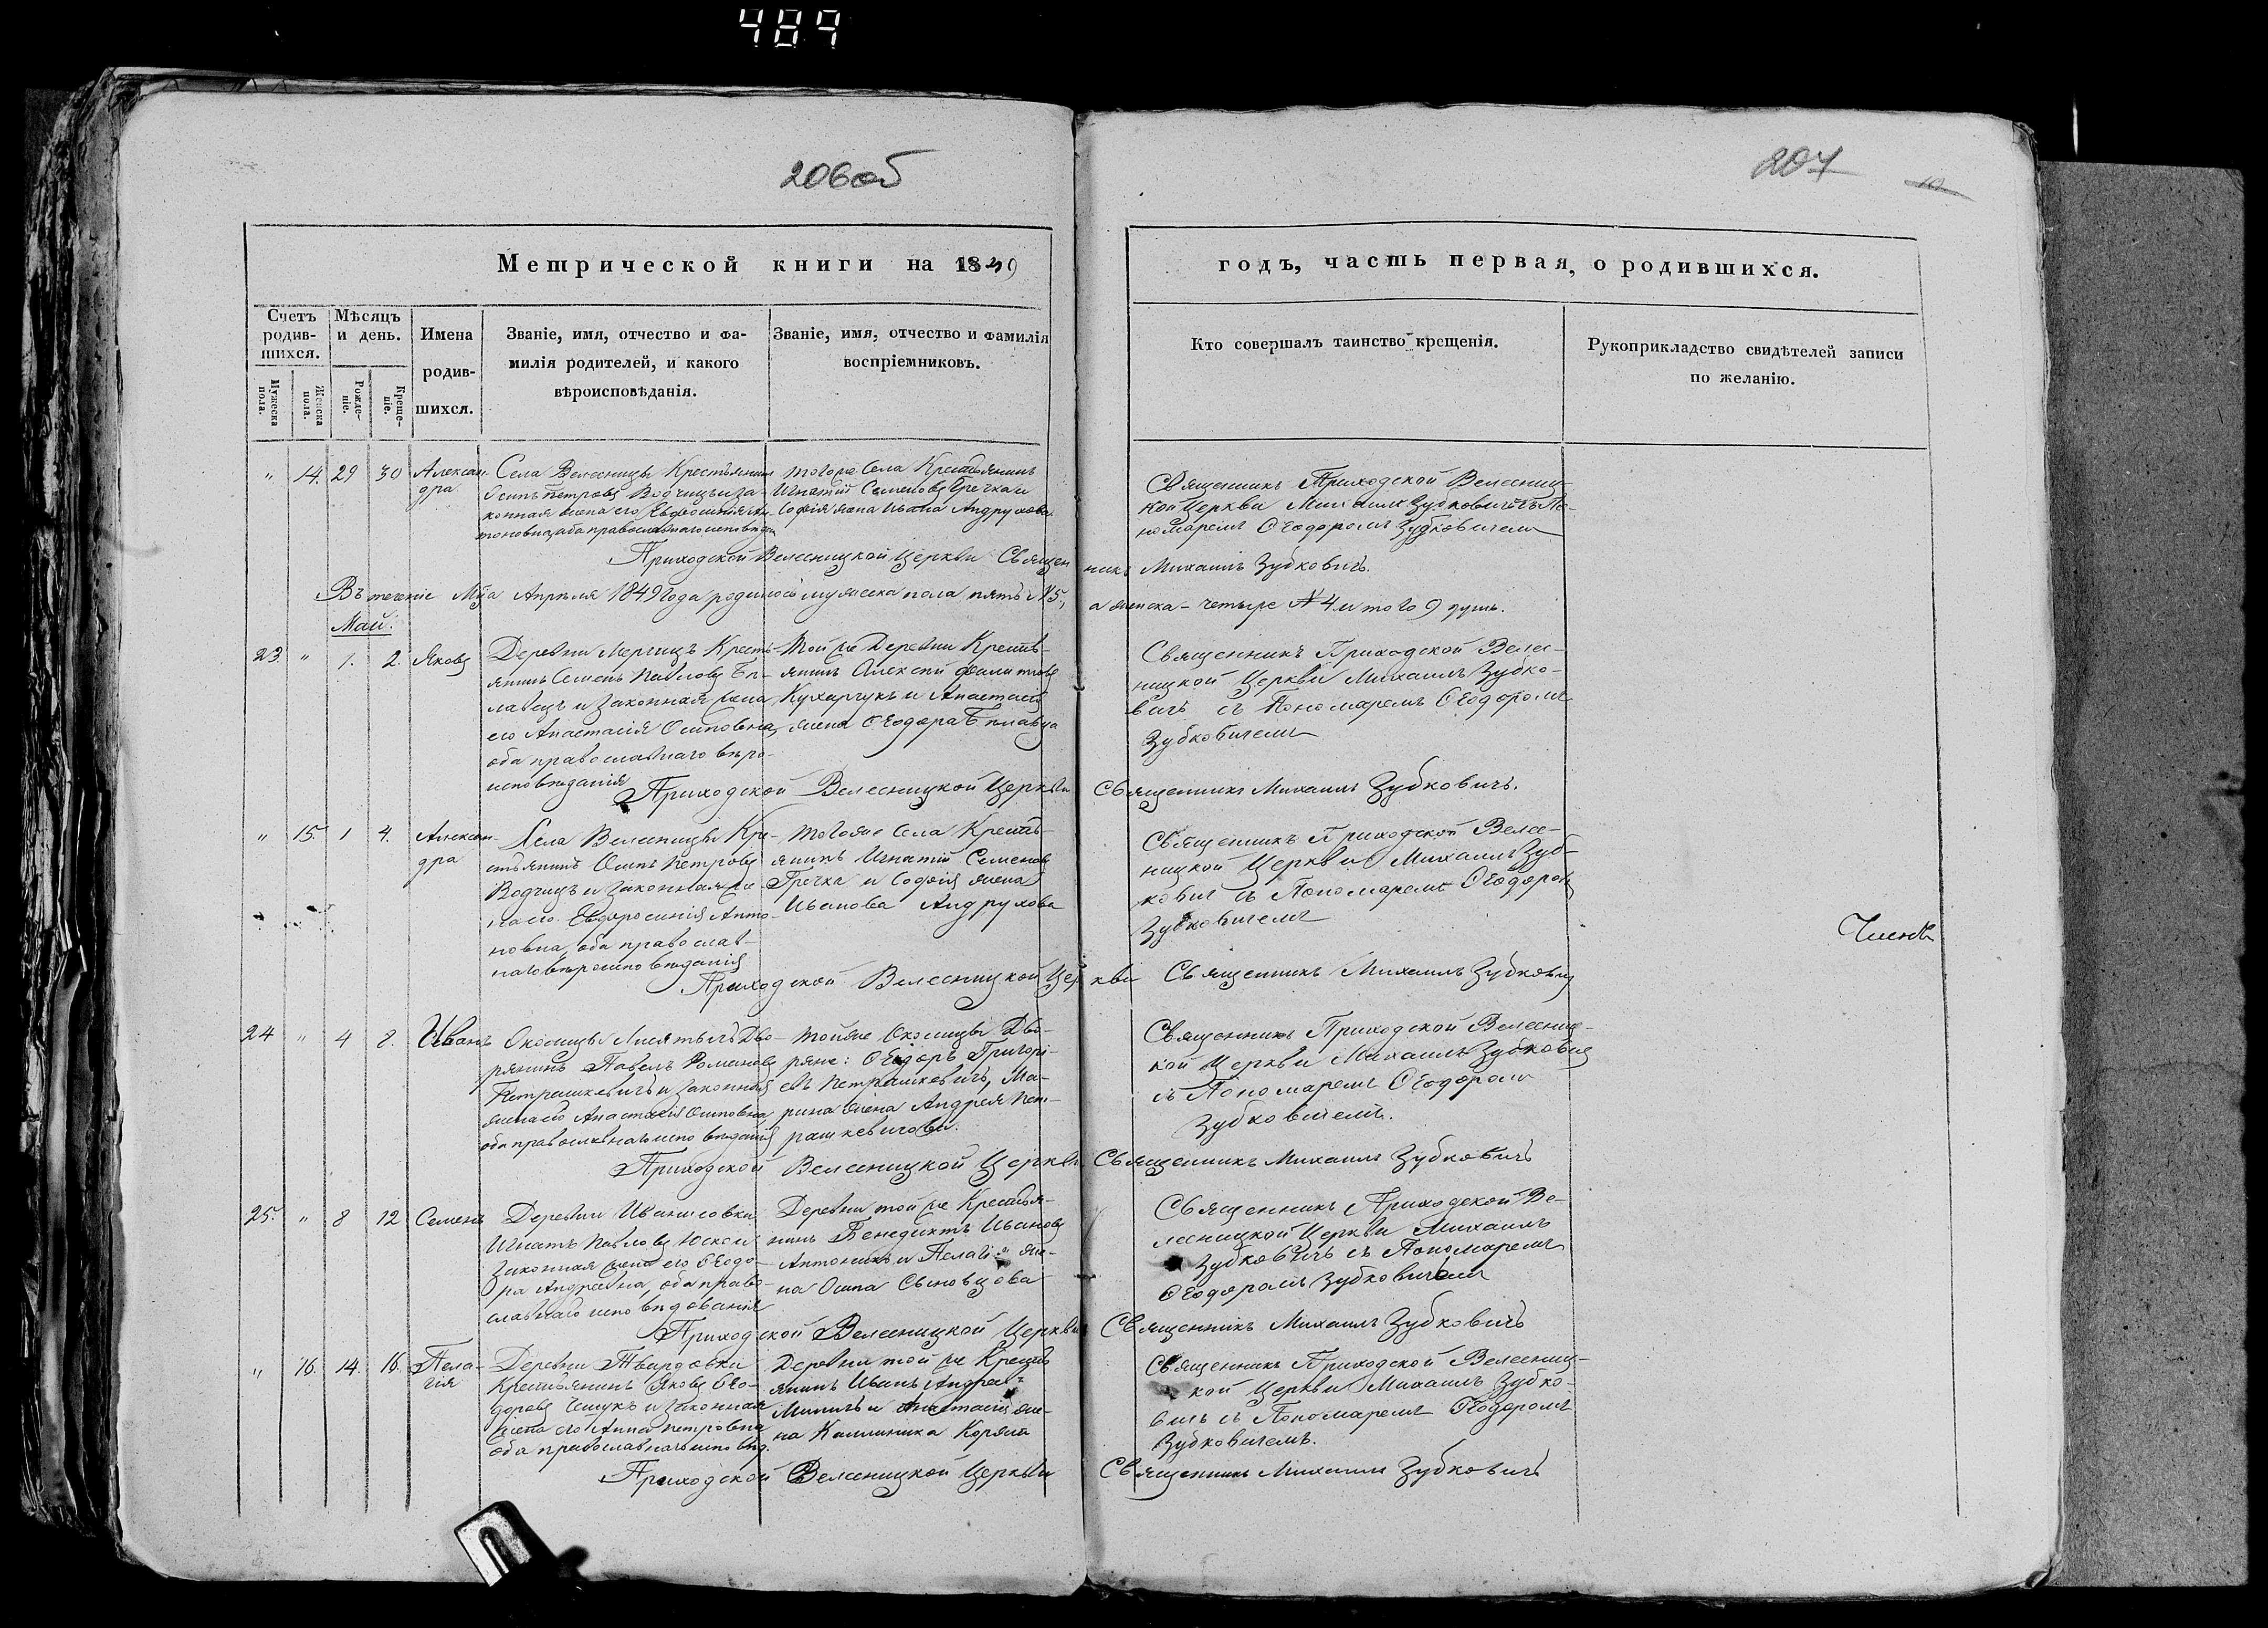 489
206об
207
Метрической книги на 1849
годъ, часть первая, о родившихся.
Счетъ родив-шихся.
Мѣсяцъ и день.
Имена родив-шихся.
Званіе, имя, отчество и фа-
милія родителей, и какого
вѣроисповѣданія.
Званіе, имя, отчество и фамилія
воспріемниковъ.
Кто совершалъ таинство крещенія.
Рукоприкладство свидѣтелей записи
по желанію.
Мужеска пола.
Женска пола.
Рожде-ніе.
Креще-ніе.
" 14. 29 30 Алексан-
дра
Села Велесницы Крестьянинъ
Осипъ Петровъ Водчицъ и за-
конная жена его Евфросинія Ан-
тоновна, оба православнаго исповѣд.
тогоже Села Крестьянинъ
Игнатій Семеновъ Гречка и
Софія жена Ивана Андрухова
Священникъ Приходской Велесниц-
кой Церкви Михаилъ Зубковичъ съ По-
номаремъ Ѳеодоромъ Зубковичемъ
Приходской Велесницкой Церкви Священникъ Михаилъ Зубковичъ.
Въ теченіе Мца Апрѣля 1849 года родилось мужеска пола пять №5, а женска - четыре №4 и того 9 душъ.
Май.
23. " 1. 2. Яковъ
Деревни Мерчицъ Кресть-
янинъ Семенъ Павловъ Бѣ-
лавецъ и законная жена
его Анастасія Осиповна,
оба православнаго вѣро-
исповѣданія
Той же Деревни Кресть-
янинъ Алексей
Кухарчукъ и Анастасія
жена Ѳеодора Бѣлавца
Священникъ Приходской Велес-
ницкой Церкви Михаилъ Зубко-
вичъ съ Пономаремъ Ѳеодоромъ
Зубковичемъ
Приходской Велесницкой Церкви Священникъ Михаилъ Зубковичъ.
" 15. 1 4. Алексан-
дра
Села Велесницы Кре-
стьянинъ Осипъ Петровъ
Водчицъ и законная же-
на его Евфросинія Анто-
новна, оба православ-
наго вѣроисповѣданія
Тогоже Села Кресть-
янинъ Игнатій Семеновъ
Гречка и Софія жена
Иванова Андрухова
Священникъ Приходской Велес-
ницкой Церкви Михаилъ Зуб-
ковичъ съ Пономаремъ Ѳеодоромъ
Зубковичемъ
Приходской Велесницкой Церкви Священникъ Михаилъ Зубковичъ
24 " 4 8. Иванъ
Околицы Лисятычъ Дво-
рянинъ Павелъ Романовъ
Петрашкевичъ и законная
жена его Анастасія Осиповна
оба православнаго исповѣданія
Тойже Околицы Дво-
ряне: Ѳеодоръ Григорі-
евъ Петрашкевичъ, Ма-
рина жена Андрея Пет-
рашкевичова.
Священникъ Приходской Велесниц-
кой Церкви Михаилъ Зубковичъ
съ Пономаремъ Ѳеодоромъ
Зубковичемъ.
Приходской Велесницкой Церкви Священникъ Михаилъ Зубковичъ
25. " 8 12 Семенъ
Деревни Иванисовки
Игнатъ Павловъ и
законная жена его Ѳеодо-
ра Андреевна, оба право-
славнаго исповѣдованія
Деревни той же Крестья-
нинъ Бенедиктъ Ивановъ
Антоникъ и Пелагія же-
на Осипа Сыновцова
Священникъ Приходской Ве-
лесницкой Церкви Михаилъ
Зубковичъ съ Пономаремъ
Ѳеодоромъ Зубковичемъ
Приходской Велесницкой Церкви Священникъ Михаилъ Зубковичъ
" 16. 14. 16. Пела-
гія
Деревни Твардовки
Крестьянинъ Яковъ Ѳео-
доровъ и законная
жена его Анна Петровна
оба православнаго исповѣд.
Деревни той же Кресть-
янинъ Иванъ Андреевъ
Миничъ и Анастасія же-
на Каллиника Коржа
Священникъ Приходской Велесниц-
кой Церкви Михаилъ Зубко-
вичъ съ Пономаремъ Ѳеодоромъ
Зубковичемъ.
Приходской Велесницкой Церкви Священникъ Михаилъ Зубковичъ